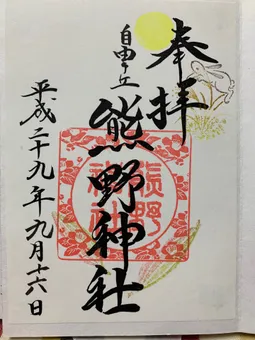 奉拝
自由ヶ丘
熊野神社
平成二十九年九月十六日